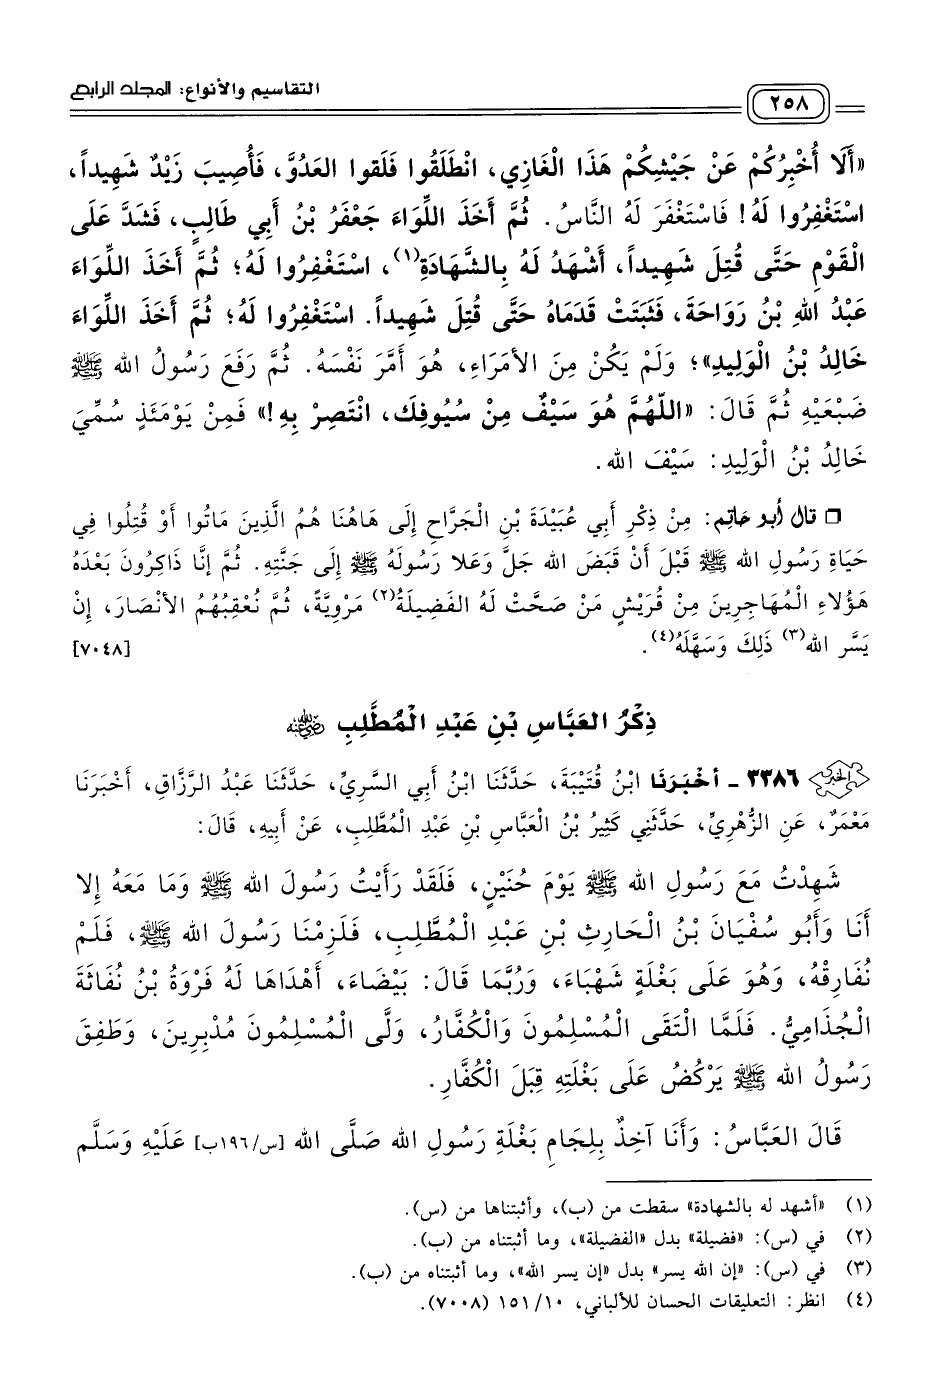 التقاسيم والأنواع: المجلد الرابع
٢٥٨
«أَلَا أُخْبِرُكُمْ عَنْ جَيْشِكُمْ هَذَا الْغَازِي، انْطَلَقُوا فَلَقوا العَدُوَّ، فَأُصِيبَ زَيْدٌ شَهِيداً،
اسْتَغْفِرُوا لَهُ! فَاسْتَغْفَرَ لَهُ النَّاسُ. ثُمَّ أَخَذَ اللِّوَاءَ جَعْفَرُ بْنُ أَبِي طَالِبٍ، فَشَدَّ عَلَى
الْقَوْمِ حَتَّى قُتِلَ شَهِيداً، أَشْهَدُ لَهُ بِالشَّهَادَةِ(١)، اسْتَغْفِرُوا لَهُ؛ ثُمَّ أَخَذَ اللِّوَاءَ
عَبْدُ اللهِ بْنُ رَوَاحَةَ، فَثَبَتَتْ قَدَمَاهُ حَتَّى قُتِلَ شَهِيداً. اسْتَغْفِرُوا لَهُ؛ ثُمَّ أَخَذَ اللِّوَاءَ
خَالِدُ بْنُ الْوَلِيدِ»؛ وَلَمْ يَكُنْ مِنَ الأُمَرَاءِ، هُوَ أَمَّرَ نَفْسَهُ. ثُمَّ رَفَعَ رَسُولُ الله ﷺ
ضَبْعَيْهِ ثُمَّ قَالَ: «اللّهُمَّ هُوَ سَيْفٌ مِنْ سُيُوفِكَ، انْتَصِرْ بِهِ!» فَمِنْ يَوْمَئَذٍ سُمِّيَ
خَالِدُ بْنُ الْوَلِيدِ: سَيْفَ الله.
❑ قال أبو حاتم: مِنْ ذِكْرِ أَبِي عُبَيْدَةَ بْنِ الْجَرَّاحِ إِلَى هَاهُنَا هُمُ الَّذِينَ مَاتُوا أَوْ قُتِلُوا فِي
حَيَاةِ رَسُولِ الله ﷺ قَبْلَ أَنْ قَبَضَ الله جَلَّ وَعَلا رَسُولَهُ ﷺ إِلَى جَنَّتِهِ. ثُمَّ إِنَّا ذَاكِرُونَ بَعْدَهُ
هَؤُلاءِ الْمُهَاجِرِينَ مِنْ قُرَيْشٍ مَنْ صَحَّتْ لَهُ الفَضِيلَةُ(٢) مَرْوِيَّةً، ثُمَّ نُعْقِبُهُمُ الأَنْصَارَ، إِنْ
يَسَّر الله(٣) ذَلِكَ وَسَهَّلَهُ(٤). [٧٠٤٨]
ذِكْرُ العَبَّاسِ بْنِ عَبْدِ الْمُطَّلِبِ رضي الله عنه
الخبر ٣٣٨٦ ـ أَخْبَرَنَا ابْنُ قُتَيْبَةَ، حَدَّثَنَا ابْنُ أَبِي السَّرِيِّ، حَدَّثَنَا عَبْدُ الرَّزَّاقِ، أَخْبَرَنَا
مَعْمَرٌ، عَنِ الزُّهْرِيِّ، حَدَّثَنِي كَثِيرُ بْنُ العَبَّاسِ بْنِ عَبْدِ الْمُطَّلِبِ، عَنْ أَبِيهِ، قَالَ:
شَهِدْتُ مَعَ رَسُولِ الله ﷺ يَوْمَ حُنَيْنٍ، فَلَقَدْ رَأَيْتُ رَسُولَ الله ﷺ وَمَا مَعَهُ إِلا
أَنَا وَأَبُو سُفْيَانَ بْنُ الْحَارِثِ بْنِ عَبْدِ الْمُطَّلِبِ، فَلَزِمْنَا رَسُولَ الله ﷺ، فَلَمْ
نُفَارِقْهُ، وَهُوَ عَلَى بَغْلَةٍ شَهْبَاءَ، وَرُبَّمَا قَالَ: بَيْضَاءَ، أَهْدَاهَا لَهُ فَرْوَةُ بْنُ نُفَاثَةَ
الْجُذَامِيُّ. فَلَمَّا الْتَقَى الْمُسْلِمُونَ وَالْكُفَّارُ، وَلَّى الْمُسْلِمُونَ مُدْبِرِينَ، وَطَفِقَ
رَسُولُ الله ﷺ يَرْكُضُ عَلَى بَغْلَتِهِ قِبَلَ الْكُفَّارِ.
قَالَ العَبَّاسُ: وَأَنَا آخِذٌ بِلِجَامِ بَغْلَةِ رَسُولِ الله صَلَّى الله [س/١٩٦ب] عَلَيْهِ وَسَلَّم
(١) «أشهد له بالشهادة» سقطت من (ب)، وأثبتناها من (س).
(٢) في (س): «فضيلة» بدل «الفضيلة»، وما أثبتناه من (ب).
(٣) في (س): «إن الله يسر» بدل «إن يسر الله»، وما أثبتناه من (ب).
(٤) انظر: التعليقات الحسان للألباني، ١٥١/١٠ (٧٠٠٨).